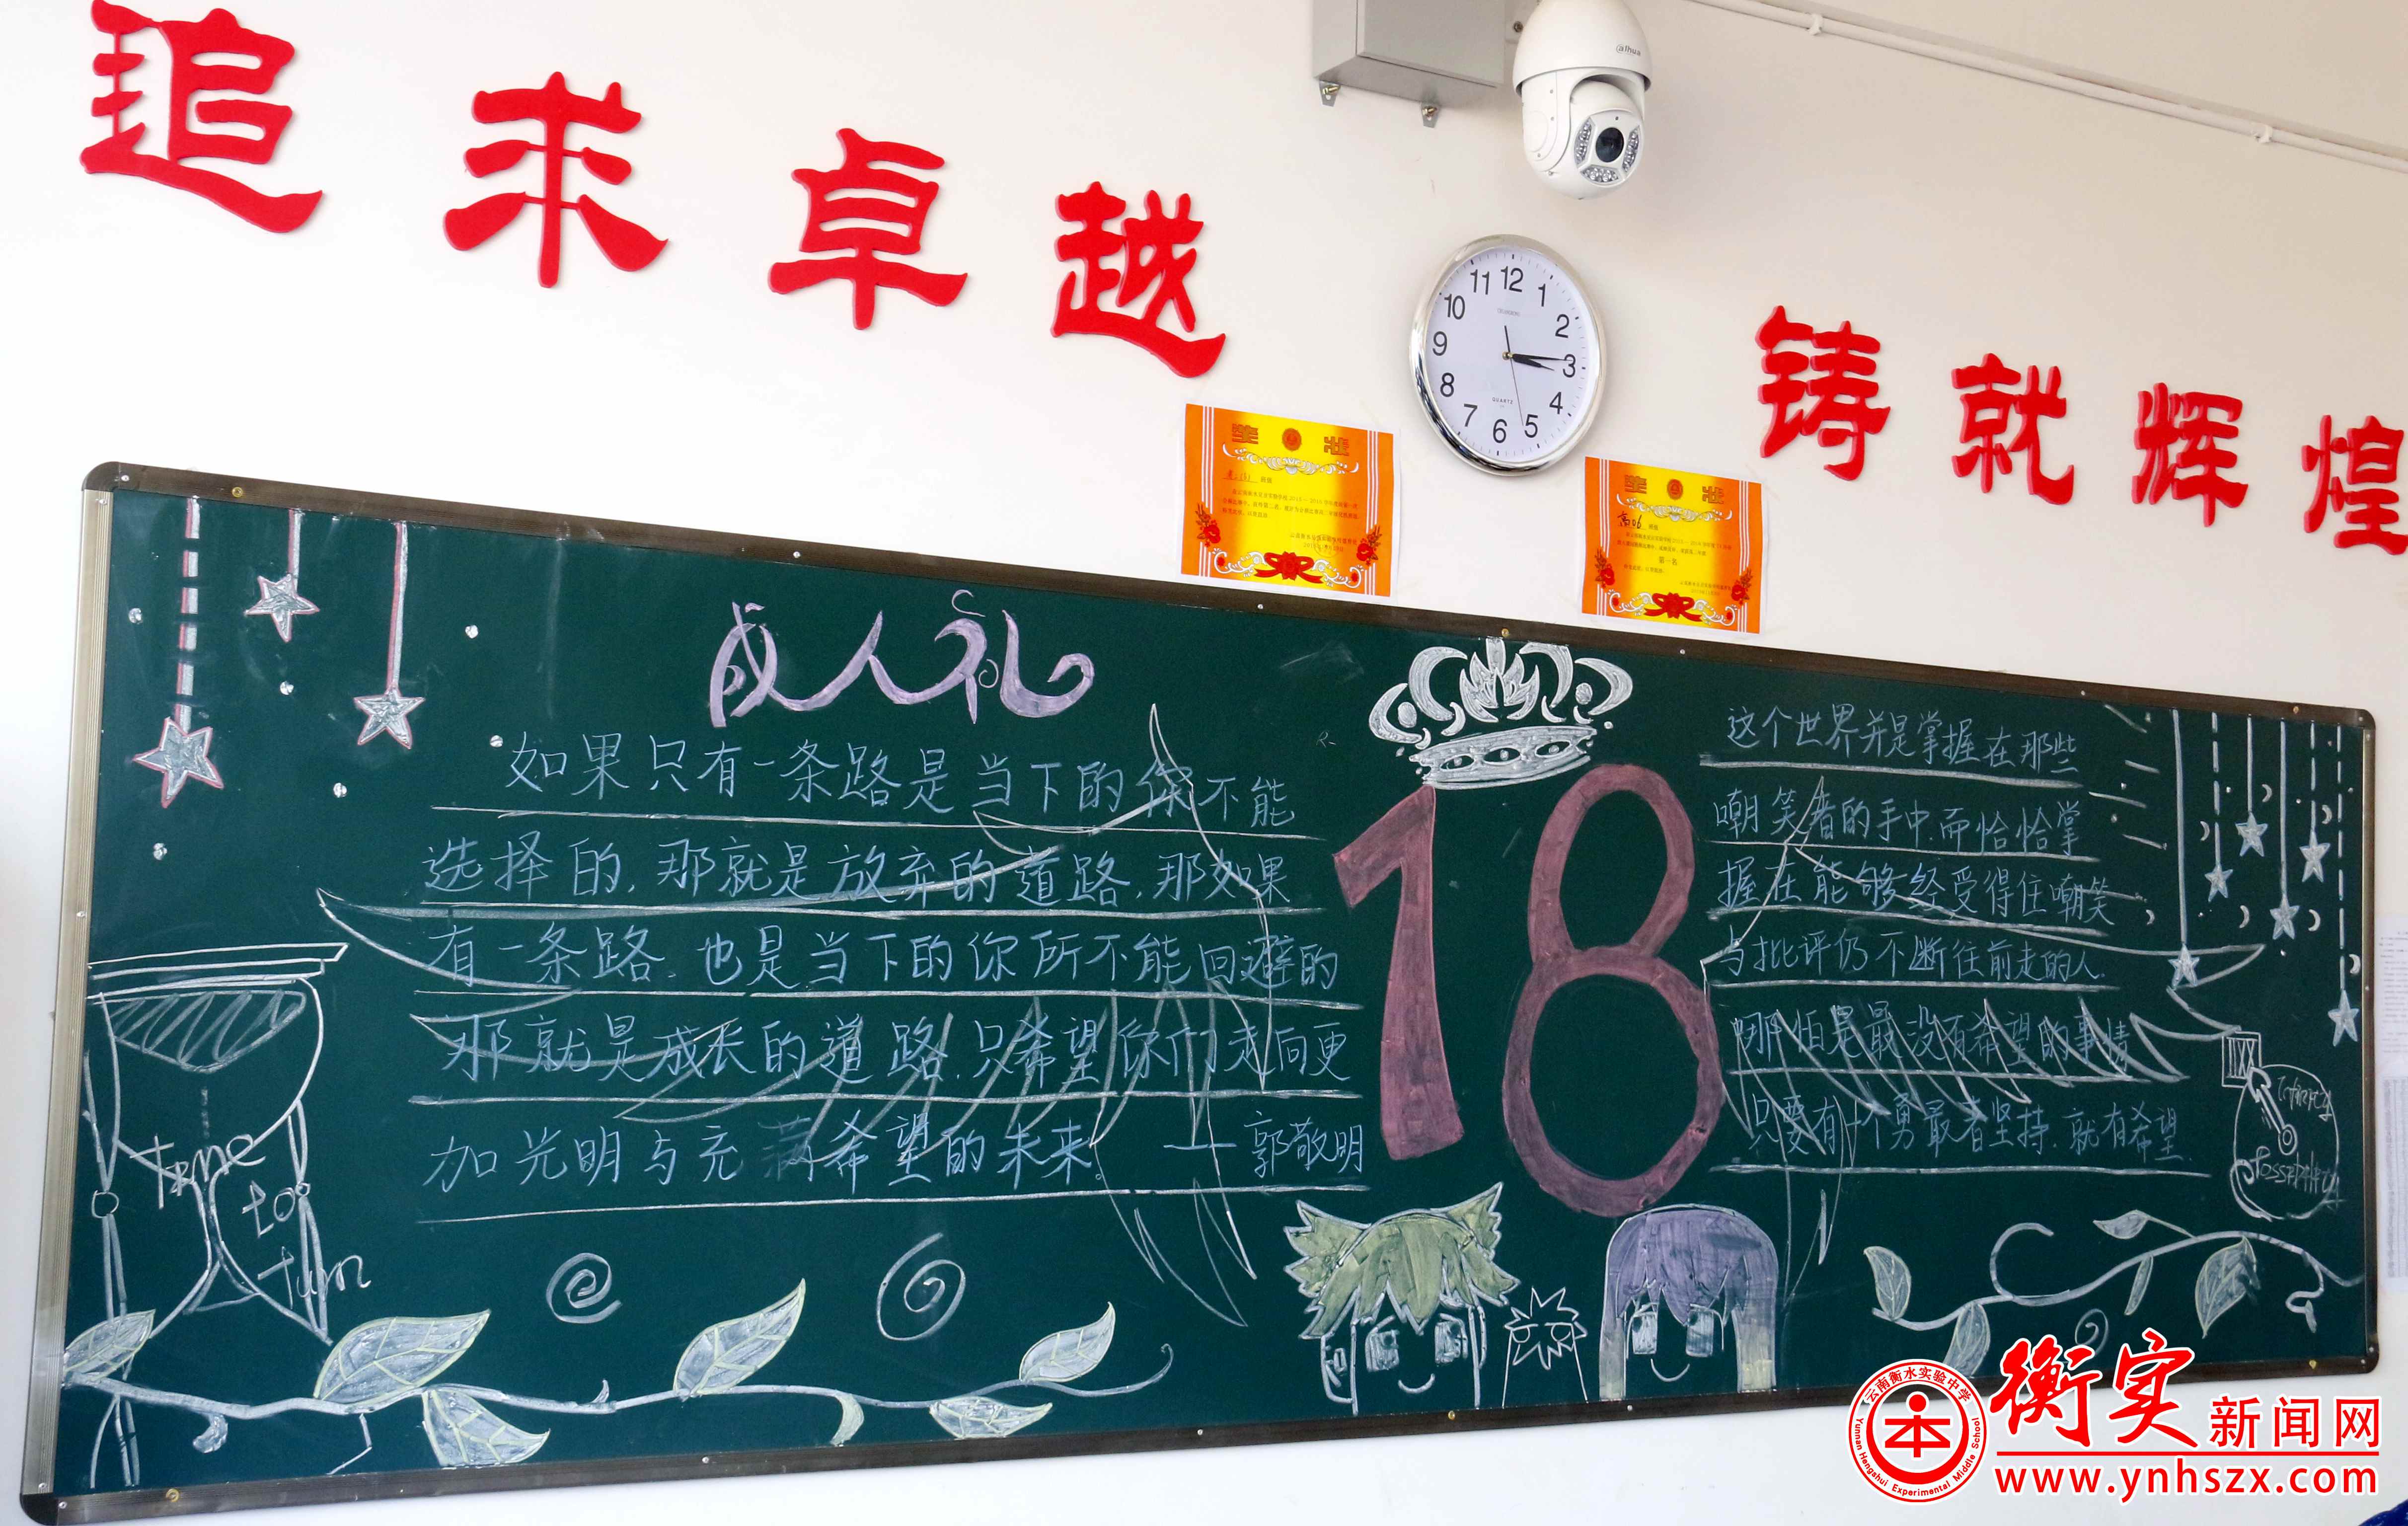 追求卓越
铸就辉煌
alhua
11 12 1
10 2
9 3
8 4
7 6 5
QUARTZ
奖状
奖状
高06
第一名
成人礼
如果只有一条路是当下的你不能
选择的，那就是放弃的道路，那如果
有一条路，也是当下的你所不能回避的
那就是成长的道路，只希望你们走向更
加光明与充满希望的未来。——郭敬明
18
这个世界并是掌握在那些
嘲笑者的手中.而恰恰掌
握在能够经受得住嘲笑
与批评仍不断往前走的人.
哪怕是最没有希望的事情
只要有一个勇敢者坚持.就有希望.
Time
to
turn
XII
云南衡水实验中学
本
Yunnan Hengshui Experimental Middle School
衡实新闻网
www.ynhszx.com